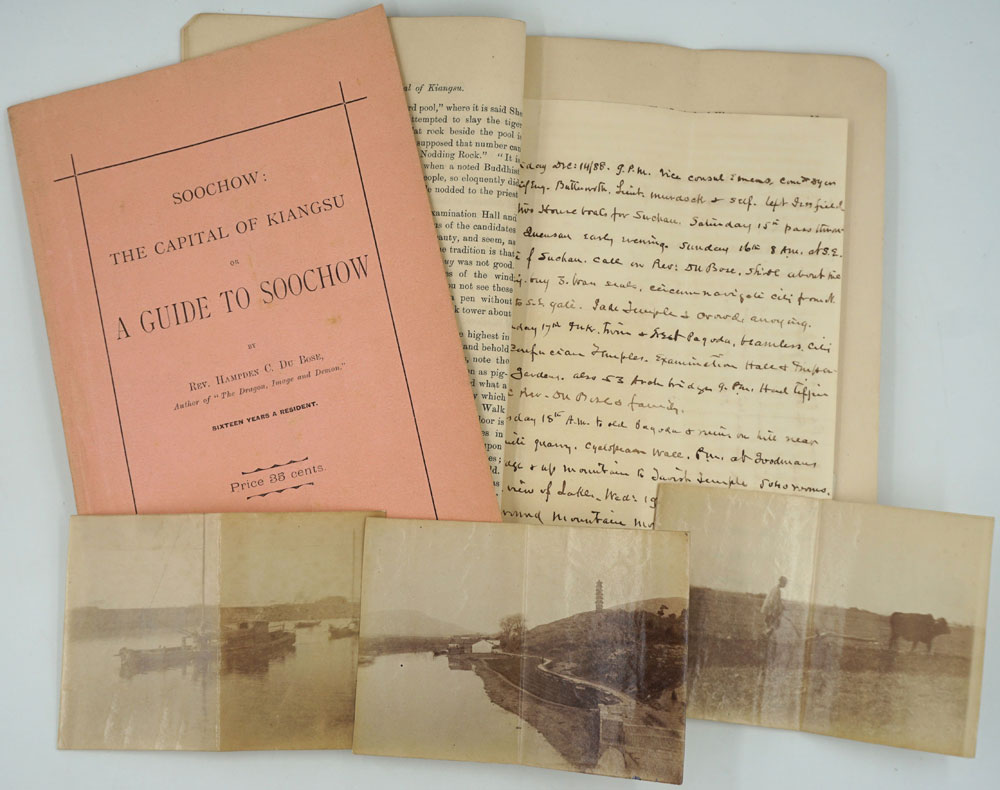 SOOCHOW:
THE CAPITAL OF KIANGSU
OR
A GUIDE TO SOOCHOW
BY
REV. HAMPDEN C. DU BOSE,
Author of "The Dragon, Image and Demon."
SIXTEEN YEARS A RESIDENT.
Price 35 cents.
al of Kiangsu.
rd pool," where it is said She
ttempted to slay the tiger
at rock beside the pool is
supposed that number can
Nodding Rock." "It is
when a noted Buddhist
eople, so eloquently did
le nodded to the priest
xamination Hall and
ns of the candidates
auty, and seem, as
he tradition is that
was not good.
es of the wind
ou not see these
pen without
k tower about
e highest in
and behold
, note the
on as pig-
d what a
y which
Walk
loor is
es in
upon
es;
ld.
as
day Dec: 14/88. 9. P.M. Vice consul
Eng. Butterworth. Lieut: Murdock & self. left
House boats for Suchau. Saturday 15th pass
early evening. Sunday 16th 8 A.M. at S.E.
of Suchau. Call on Rev: Du Bose, about
circumnavigate city from N.
to gate. Temple & crowds anoying.
day 17th Twin & Great Pagoda, city
Confucian Temples. Examination Hall &
Gardens. also 53 Arch bridge 9. P.m. Had tiffin
Rev. Du Bose & family.
day 18th A.M. to old Pagoda & ruin on hill near
quarry. Cyclopean Wall. P.m. at
& up mountain to Temple
view of Lake. Wed: 19
round Mountain